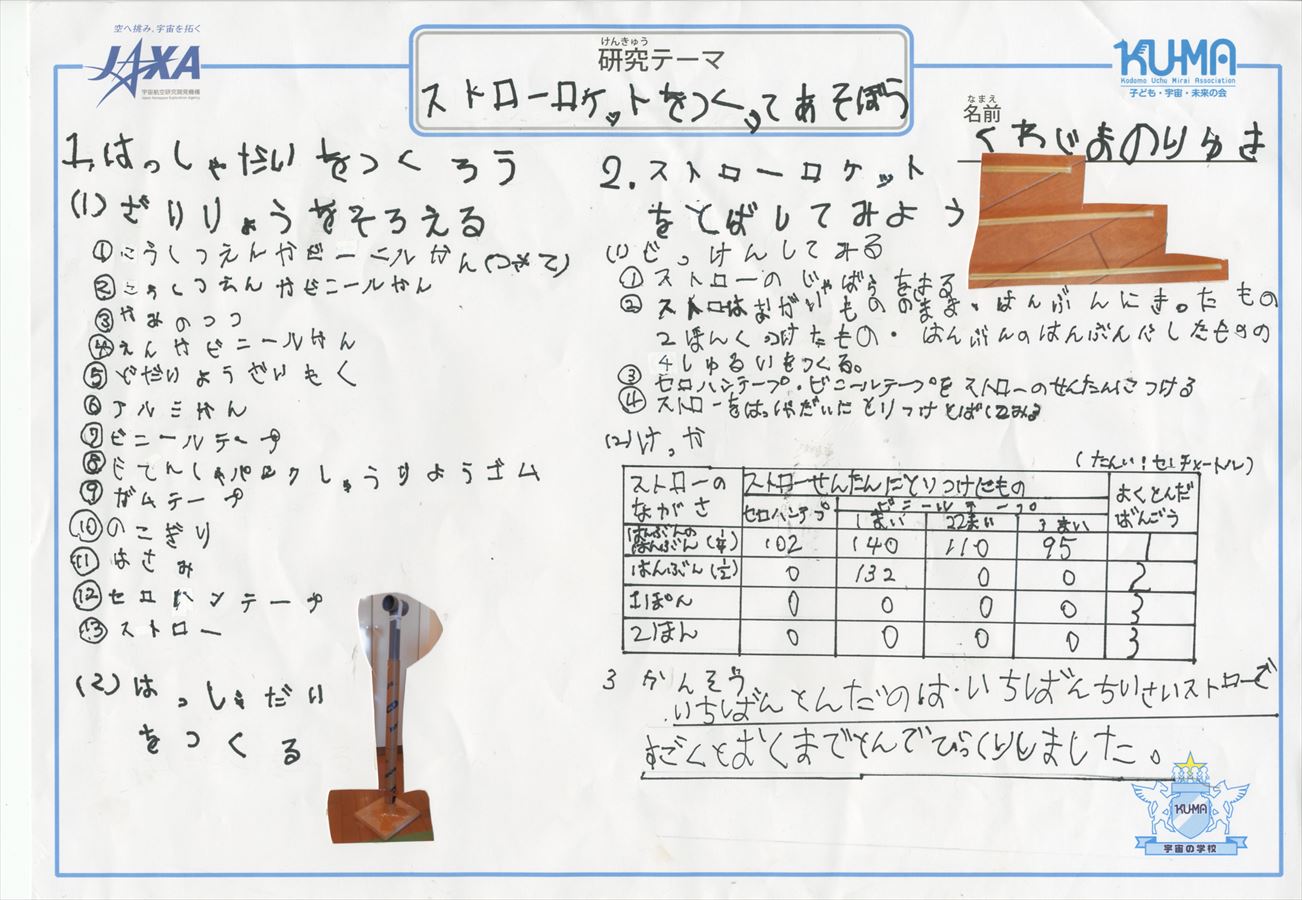 空へ挑み、宇宙を拓く
JAXA
宇宙航空研究開発機構
Japan Aerospace Exploration Agency
けんきゅう
研究テーマ
ストローロケットをつくってあそぼう
KUMA
Kodomo Uchu Mirai Association
子ども・宇宙・未来の会
なまえ
名前
くわじまのりゆき
1, はっしゃだいをつくろう
(1) ざいりょうをそろえる
① こうしつえんかビニールかん(つぎて)
② こうしつえんかビニールかん
③ やみのつつ
④ えんかビニールかん
⑤ どだいようざいもく
⑥ アルミかん
⑦ ビニールテープ
⑧ じてんしゃパンクしゅうりようゴム
⑨ ガムテープ
⑩ のこぎり
⑪ はさみ
⑫ セロハンテープ
⑬ ストロー
(2) はっしゃだい
をつくる
2. ストローロケット
をとばしてみよう
(1) じっけんしてみる
① ストローのじゃばらをきる
② ストローはながいもののまま・はんぶんにきったもの
2ほんくっつけたもの・はんぶんのはんぶんにしたものの
4しゅるいをつくる。
③ セロハンテープ・ビニールテープをストローのせんたんにつける
④ ストローをはっしゃだいにとりつけとばしてみる
(2) けっか
(たんい:センチメートル)
ストローのながさ ストローせんたんにとりつけたもの よくとんだばんごう
セロハンテープ ビニールテープ
1まい 2まい 3まい
はんぶんのはんぶん(1/4) 102 140 110 95 1
はんぶん(1/2) 0 132 0 0 2
1ぽん 0 0 0 0 3
2ほん 0 0 0 0 3
3 かんそう
いちばんとんだのは・いちばんちいさいストローで
すごくとおくまでとんでびっくりしました。
KUMA
宇宙の学校